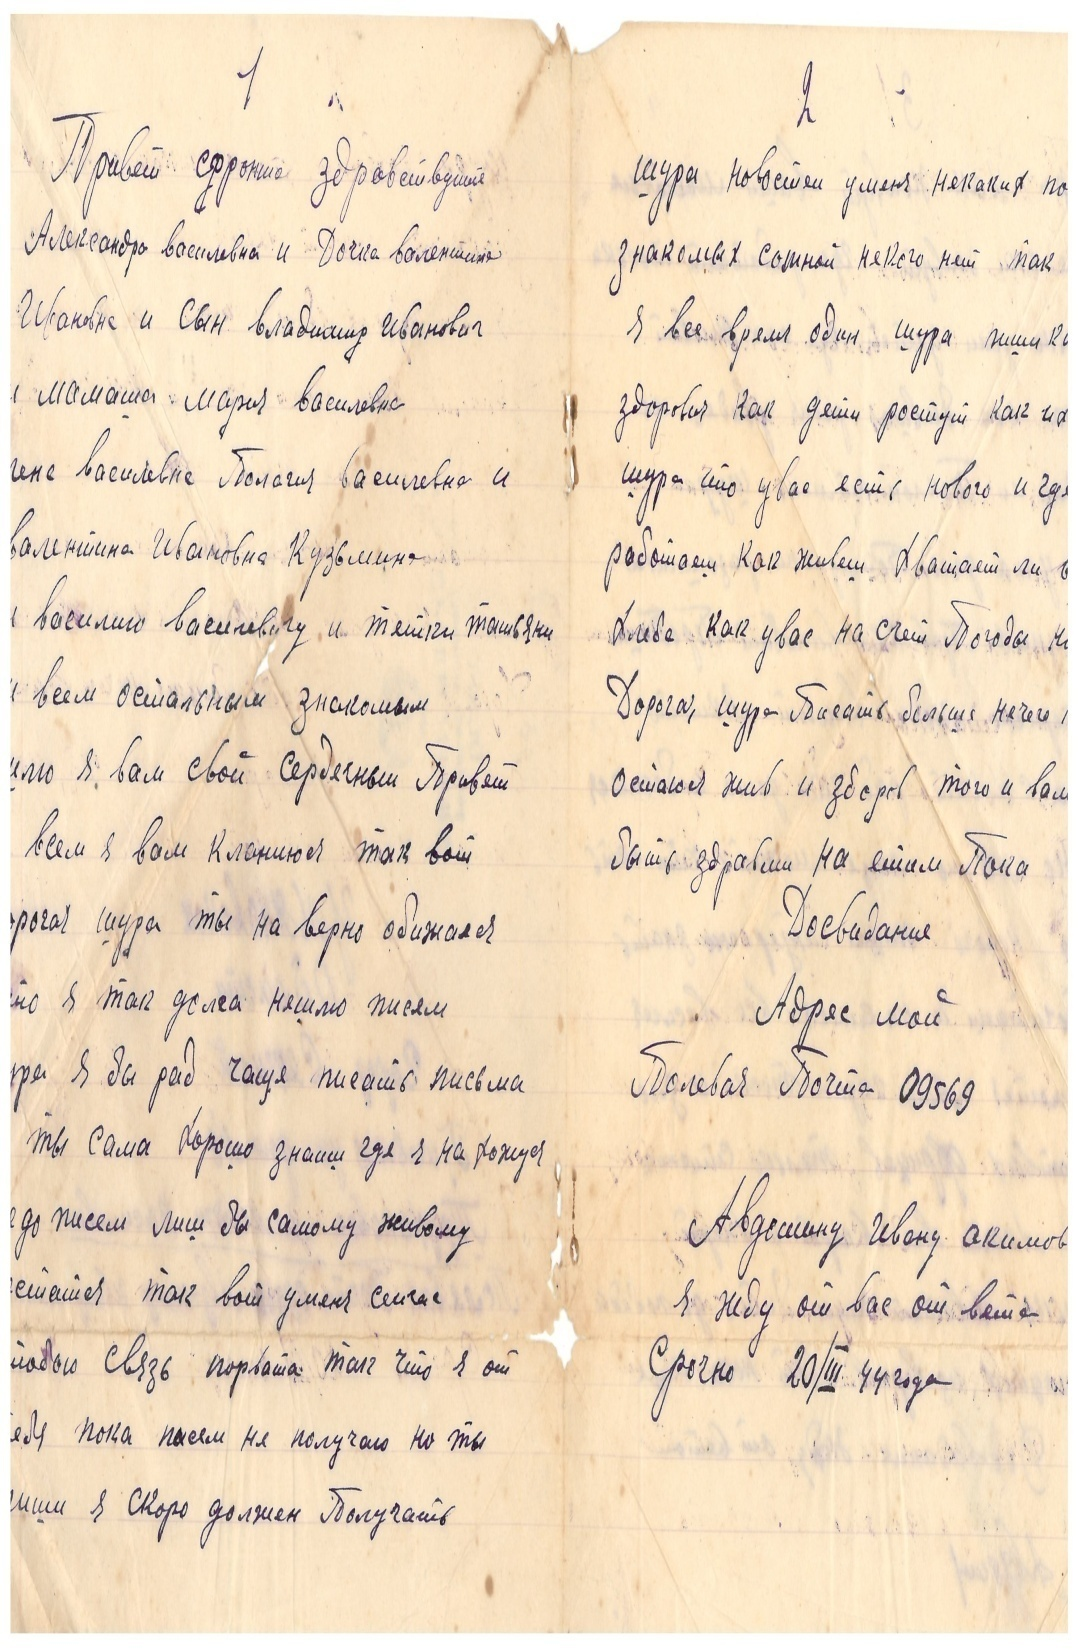 1
Привет сфронта здровствуйте
Александра василевна и Дочка валентина
Ивановна и Сын владимир иванович
и мамаша мария василевна
василевна Пология василевна и
валентина Ивановна Кузьмина
и василию василевичу и тетки татьяни
и всем остальным знакомым
шлю я вам свой сердечный Привет
всем я вам кланиюся так вот
орогая шура ты на верно обижаеся
что я так долга нешлю писем
ура я бы рад чаще писать письма
ты сама хорошо знаиш где я на хожуся
до писем лиш бы самому живому
статся так вот уменя сейчас
тобою связь порвата так что я от
ебя пока писем не получаю но ты
пиши я скоро должен Получать
2
шура новостеи уменя некаких по
знакомых сомной некого нет так
я все время один шура пиши ка
здоровия как дети ростут как их
шура что увас есть нового и где
работаеш как живеш Хватает ли в
хлеба как увас на счет Погоды
Дорогая шура Писать больше нечего
остаюся жив и здоров того и вам
быть здравми на етим Пока
Досвидания
Адрес мой
Полевая Почта 09569
Авдошину Ивану акимов
я жду от вас от вета
Срочно 20/III 44 года